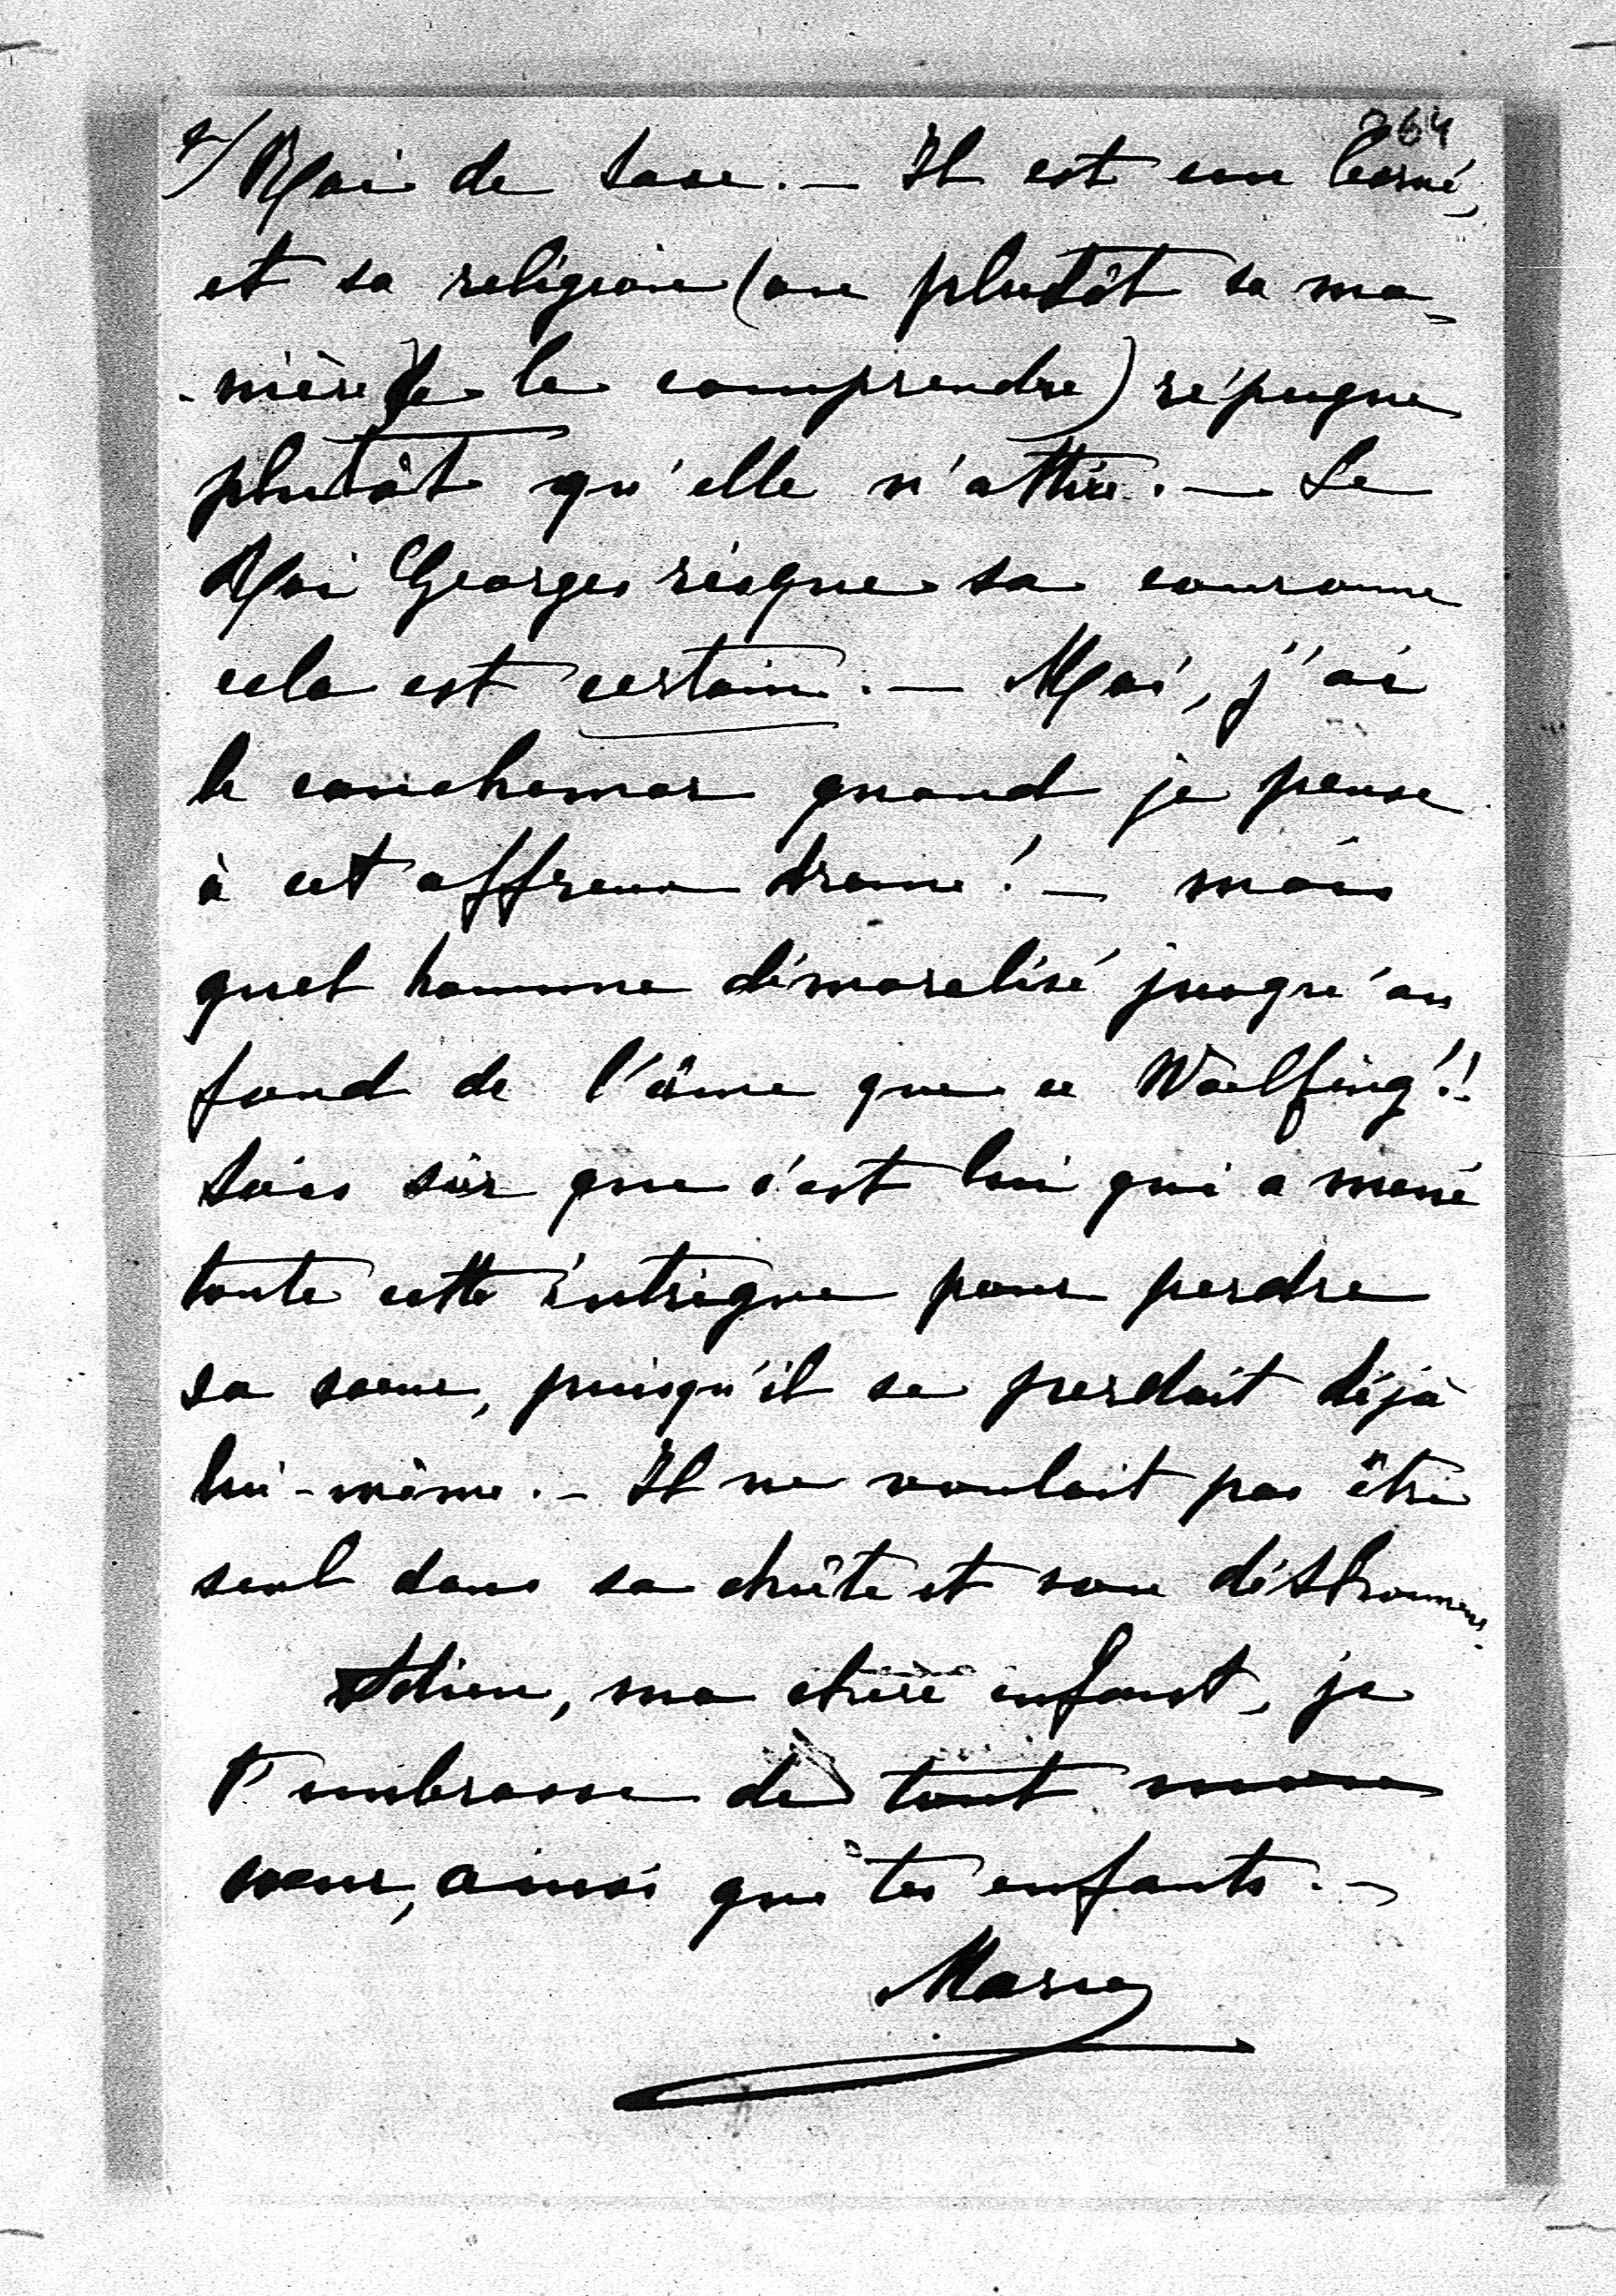 264
2/ Roi de Saxe. — Il est un borné,
et sa religion (ou plutôt sa ma-
-nière de la comprendre) répugne
plutôt qu'elle n'attire. — Le
Roi Georges risque sa couronne
cela est certain. — Moi, j'ai
le cauchemar quand je pense
à cet affreux drame! — mais
quel homme démoralisé jusqu'au
fond de l'âme que ce Wölfing!!
Sois sûr que c'est lui qui a mené
toute cette intrigue pour perdre
sa soeur, puisqu'il se perdait déjà
lui-même. — Il ne voulait pas être
seul dans sa chûte et son
Adieu, ma chère enfant, je
t'embrasse de tout mon
coeur, ainsi que tes enfants. —
Marie